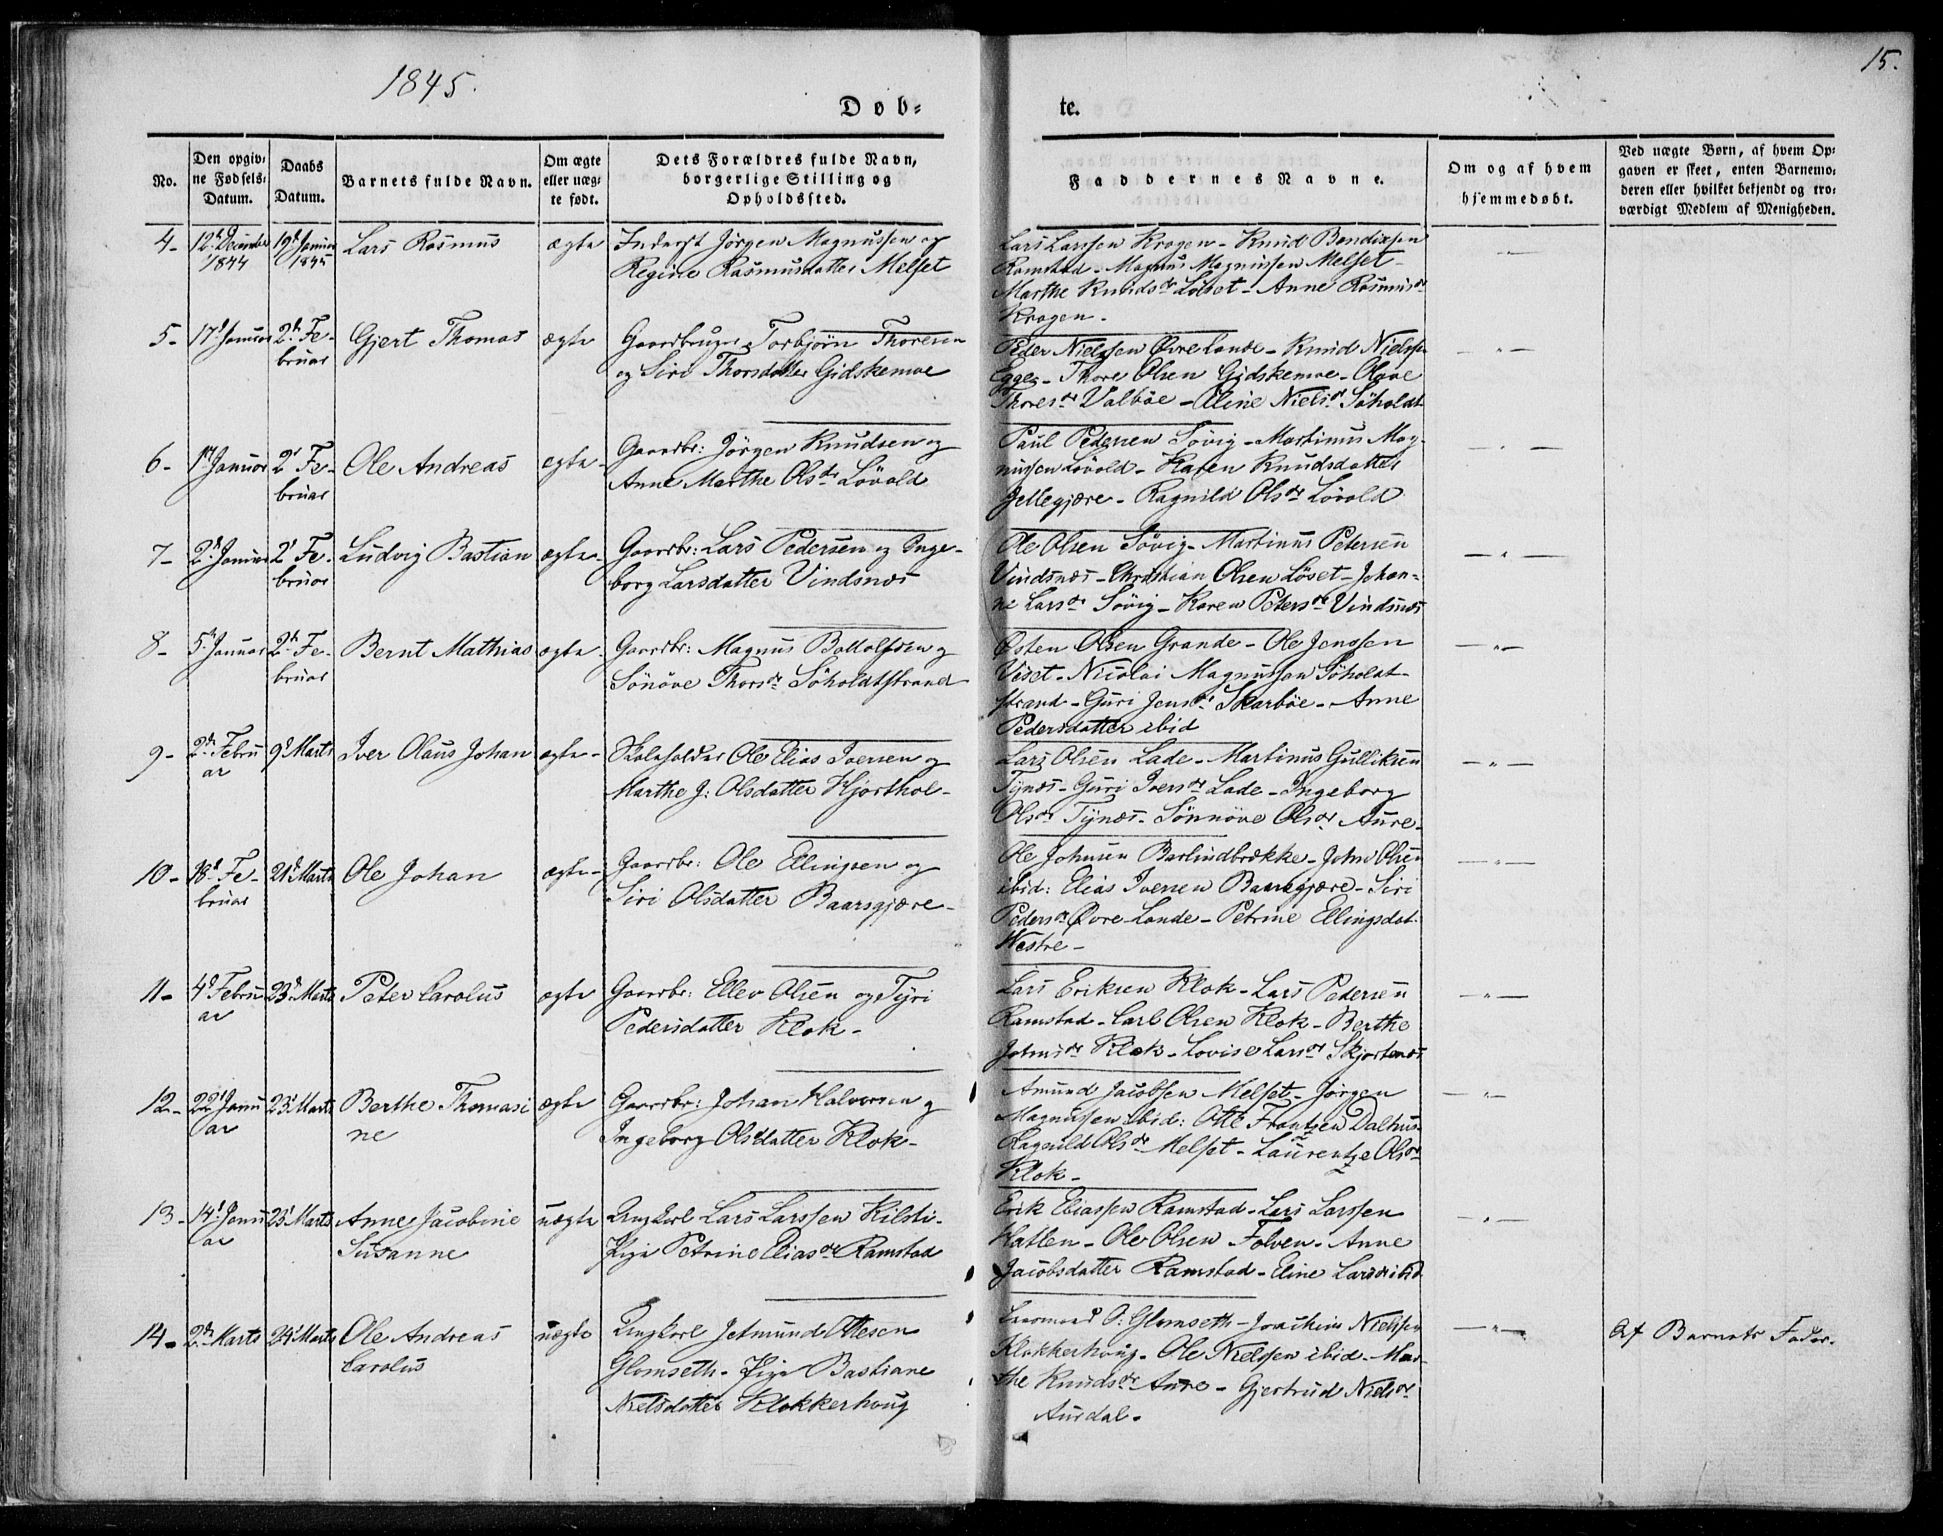 1845.
15.
Døb-
te.
No.
Den opgiv-
ne Fødsels-
Datum.
Daabs
Datum.
Barnets fulde Navn.
Om ægte
eller uæg-
te født.
Dets Forældres fulde Navn,
borgerlige Stilling og
Opholdssted.
Faddernes Navne.
Om og af hvem
hjemmedøbt.
Ved uægte Børn, af hvem Op-
gaven er skeet, enten Barnemo-
deren eller hvilket bekjendt og tro-
værdigt Medlem af Menigheden.
4- 12te December 19d Januar Lars Rasmus ægte Inderst Jørgen Magnussen og
1844 1845 Regine Rasmusdatter Melset
Lars Larssen Krogen - Knud Bendixsen —"—
Ramstad - Magnus Magnussen Melset -
Marthe Knudsdr Løset - Anne Rasmusdr
Krogen.
5- 17d Januar 2d Fe- Gjert Thomas ægte Gaardbruger Torbjørn Thoresen
bruar og Siri Thorsdatter Gidskemoe
Peder Nielssen Øvre Lande - Knud Nielss. —"—
Egge - Thore Olsen Gidskemoe - Olave
Thoresdr Valbøe - Eline Nielsdr Søholdt
6- 1st Januar 2d Fe- Ole Andreas ægte- Gaardbr: Jørgen Knudsen og
bruar Anne Marthe Olsdr Løvold
Paul Pedersen Søvig - Martinus Mag- —"—
nussen Løvold - Karen Knudsdatter
Jellegjære - Ragnild Olsdr Løvold
7- 2d Januar 2d Fe- Ludvig Bastian ægte- Gaardbr: Lars Pedersen og Inge-
bruar borg Larsdatter Vindsnæs
Ole Olsen Søvig - Martinus Petersen —"—
Vindsnæs - Christian Olsen Løset - Johan-
ne Larsdr Søvig - Karen Petersdr Vindsnæs
8- 5te Januar 2d Fe- Bernt Mathias ægte- Gaardbr: Magnus Bottolfsen og
bruar Sønøve Thorsdr Søholdtstrand
Østen Olsen Grande - Ole Jenssen —"—
Viset - Nicolai Magnussen Søholdt-
strand - Guri Jensdr Skarbøe - Anne
Pedersdatter ibid
9- 2d Febru 9d Marts Iver Olaus Johan ægte- Skoleholder Ole Elias Iversen og
ar Marthe J: Olsdatter Hjorthol-
Lars Olsen Lade - Martinus Gulliksen —"—
Tynæs - Guri Iversdr Lade - Ingeborg
Olsdr Tynæs - Sønnøve Olsdr Aure -
10- 18d Fe- 21d Marts Ole Johan ægte- Gaardbr: Ole Ellingsen og
bruar Siri Olsdatter Baarsgjære -
Ole Johnsen Barlindbrække - John Olsen —"—
ibid: Elias Iversen Baarsgjære - Siri
Pedersdr Øvre Lande - Petrine Ellingsdat
Westre -
11- 4d Febru 23d Marts Peter Carolus ægte Gaardbr: Ellev Olsen og Tyri
ar Pedersdatter Klok -
Lars Eriksen Klok - Lars Pedersen —"—
Ramstad - Carl Olsen Klok - Berthe
Johnsdr Klok - Lovise Larsdr Skjortenæs
12- 22d Janu 23d Marts Berthe Thomasi ægte Gaardbr: Johan Halvorsen og
ar ne Ingeborg Olsdatter Klok -
Amund Jacobsen Melset - Jørgen —"—
Magnussen ibid: Otte Frantzen Dalhus-
Ragnild Olsdr Melset - Laurentze Olsdr
Klok -
13- 14d Janu 23d Marts Anne Jacobine uægte Ungkarl Lars Larssen Kilsti-
ar Susanne Pige Petrine Eliasdr Ramstad
Erik Eliassen Ramstad - Lars Larssen —"—
Hatlen - Ole Olsen Folven - Anne
Jacobsdatter Ramstad - Eline Larsdr ibid
14- 2d Marts 24d Marts Ole Andreas uægte Ungkarl Jetmund Ottesen
Carolus Glomseth - Pige Bastiane
Nielsdatter Klokkerhoug
O: Glomseth - Joachim Nielssen —"— Af Barnets Fader.
Klokkerhoug - Ole Nielssen ibid - Mar-
the Knudsdr Aure - Gjertrud Nielsdr
Aurdal.